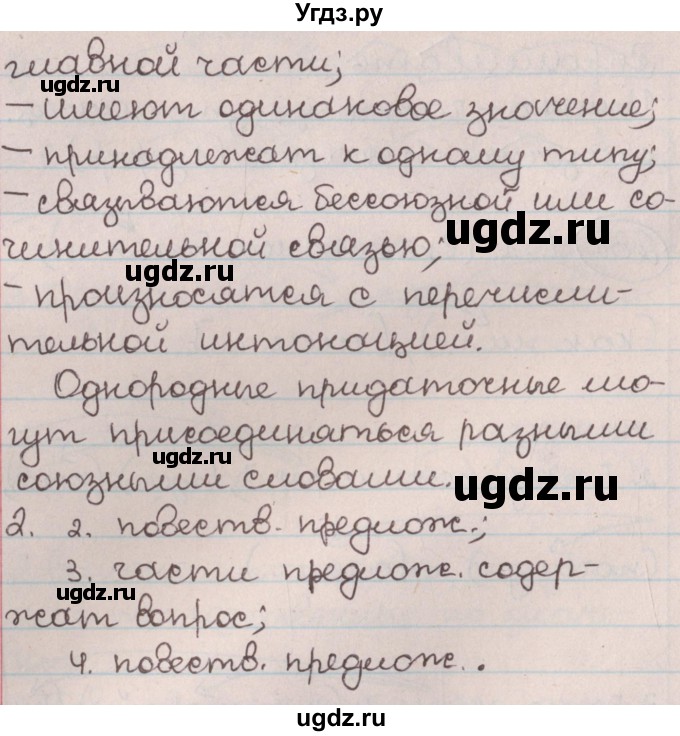 Угдз.ру
главной части;
ugdz.ru
– имеют одинаковое значение;
– принадлежат к одному типу;
ugdz.ru
– связываются бессоюзной или со-
ugdz.ru
чинительной связью;
ugdz.ru
– произносятся с перечисли-
тельной интонацией.
Однородные придаточные мо-
гут присоединяться разными
ugdz.ru
союзными словами.
ugdz.ru
2. 2. повеств. предлож.;
3. части предлож. содер-
ugdz.ru
жат вопрос;
4. повеств. предлож..
ugdz.ru